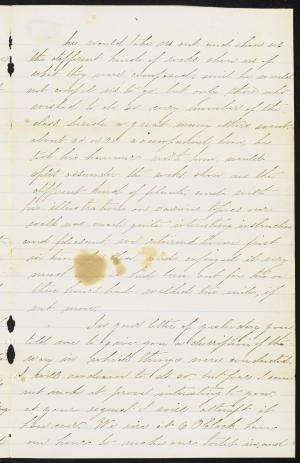 he would take us out and show us
the different kinds of rocks show us of
what they were composed, said he would
not compel us to go, but only those who
wished to do so every member of the
class beside a great many others went
about 20 or 30 accompanying him, he
took his hammer with him, would
split assunder the rocks, show us the
different kind of plants, and with
his illustrations on various topics our
walk was made quite interesting instructive
and pleasant we returned home just
in time for tea and enjoyed it very
much but two out for the
three hours had walked five miles, if
not more.
In your letter of yesterday you
told me to give you a description of the
way in which things were conducted.
I will endeavor to do so, but fear I can
not make it prove interesting to you,
at your request I will attempt it
however. We rise at 6 O'Clock have
one hour to make our toilet in, and